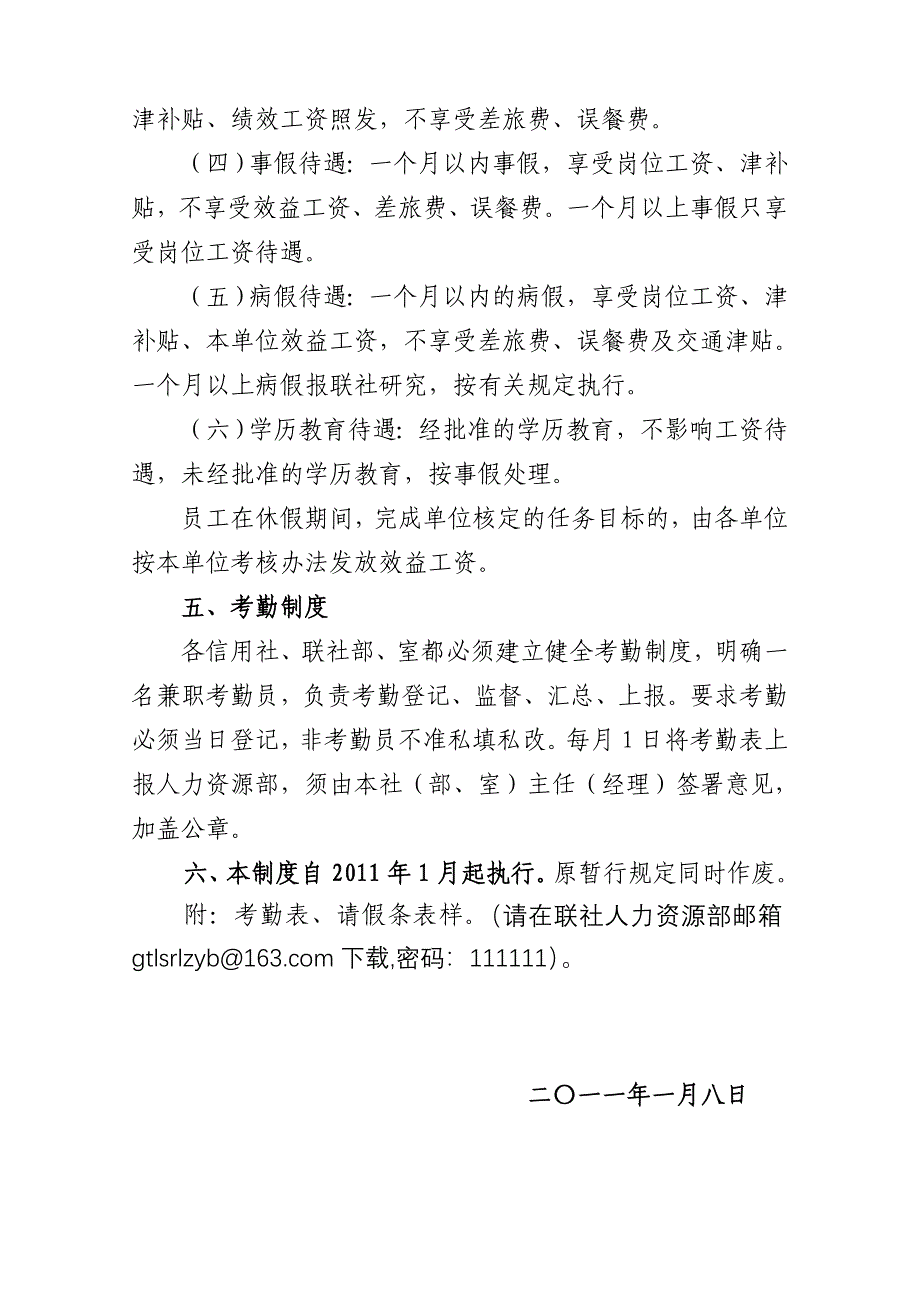 津补贴、绩效工资照发，不享受差旅费、误餐费。
（四）事假待遇：一个月以内事假，享受岗位工资、津补
贴，不享受效益工资、差旅费、误餐费。一个月以上事假只享
受岗位工资待遇。
（五）病假待遇：一个月以内的病假，享受岗位工资、津
补贴、本单位效益工资，不享受差旅费、误餐费及交通津贴。
一个月以上病假报联社研究，按有关规定执行。
（六）学历教育待遇：经批准的学历教育，不影响工资待
遇，未经批准的学历教育，按事假处理。
员工在休假期间，完成单位核定的任务目标的，由各单位
按本单位考核办法发放效益工资。
五、考勤制度
各信用社、联社部、室都必须建立健全考勤制度，明确一
名兼职考勤员，负责考勤登记、监督、汇总、上报。要求考勤
必须当日登记，非考勤员不准私填私改。每月1日将考勤表上
报人力资源部，须由本社（部、室）主任（经理）签署意见，
加盖公章。
六、本制度自2011年1月起执行。原暂行规定同时作废。
附：考勤表、请假条表样。（请在联社人力资源部邮箱
gtlsrlzyb@163.com下载,密码：111111）。
二〇一一年一月八日